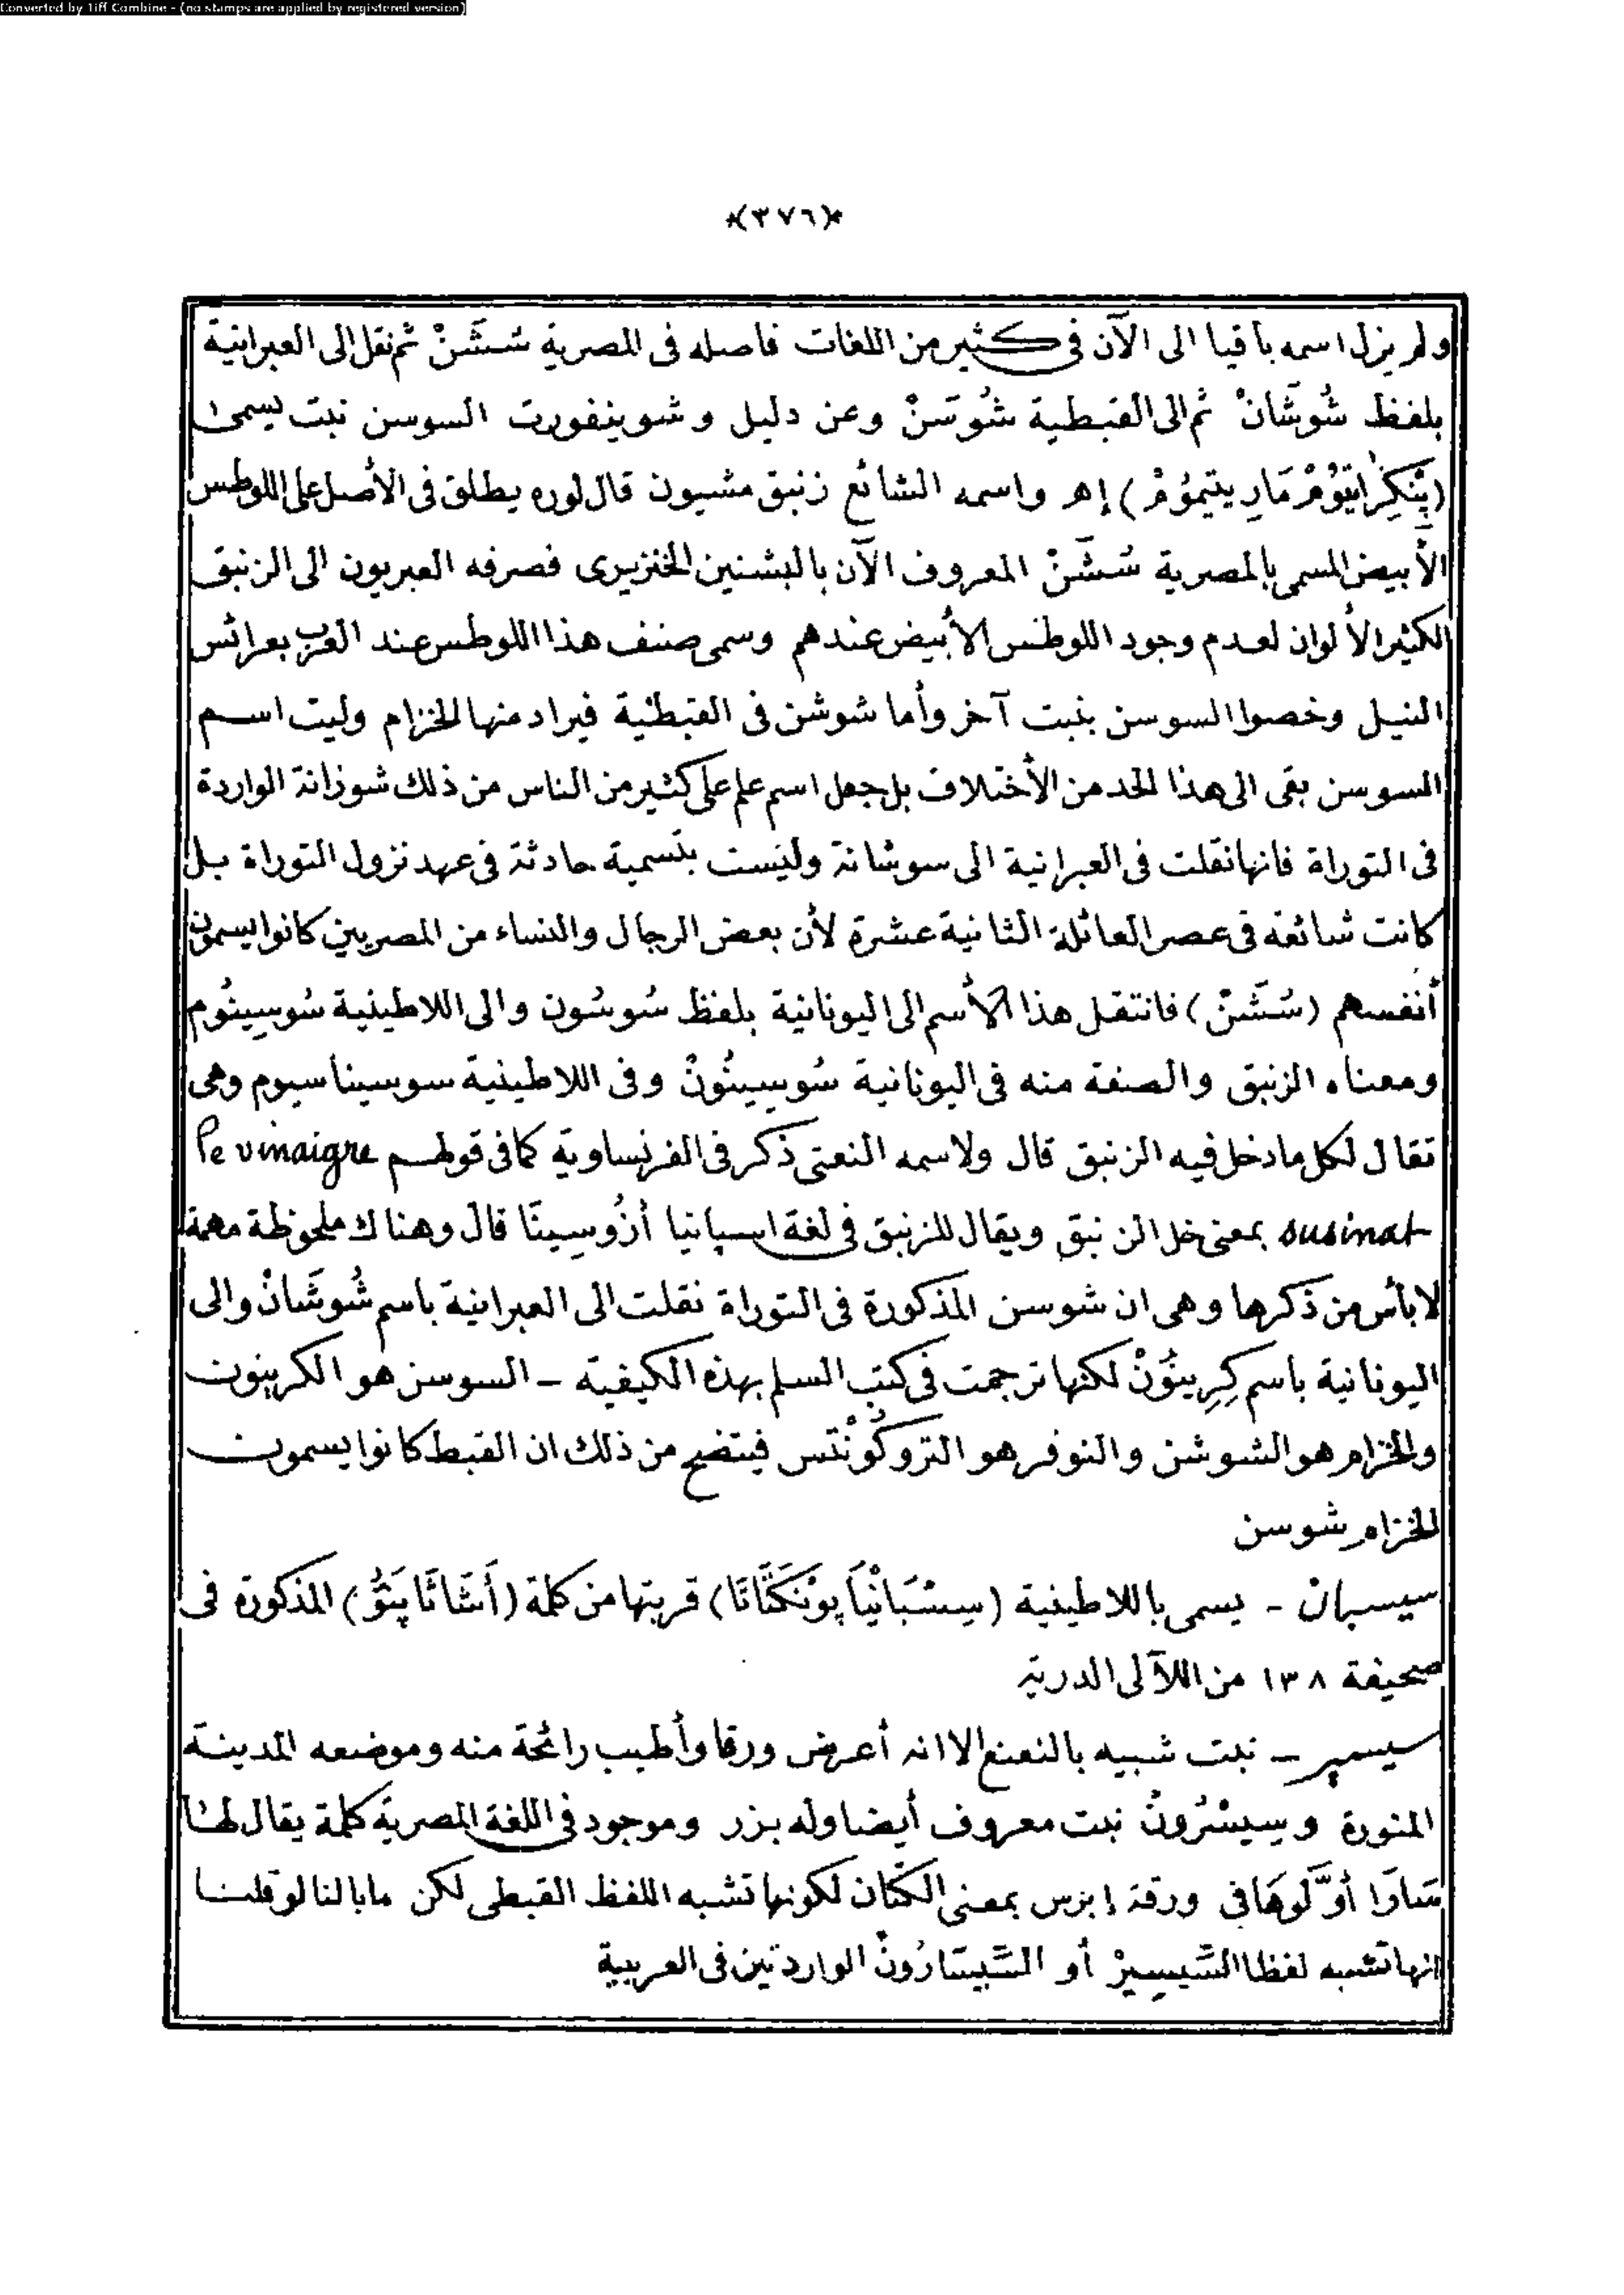 Converted by Tiff Combine - (no stamps are applied by registered version)
*(٣٧٦)*
ولم يزل اسمه باقيا الى الآن فى كثير من اللغات فاصله فى المصرية سَشَّنْ ثم نقل الى العبرانية
بلفظ شُوشَانْ ثم الى القبطية شُوسَنْ وعن دليل وشوينفورت السوسن نبت يسمى
(پَنْكِرَاتيُوْمْ مَارِيتيمُومْ) إهـ واسمه الشائع زنبق مشيون قال لوره يطلق فى الأصل على اللوطس
الأبيض المسمى بالمصرية سَشَّنْ المعروف الآن بالبشنين الخنزيرى فصرفه العبريون الى الزنبق
الكثير الألوان لعدم وجود اللوطس الأبيض عندهم وسمى صنف هذا اللوطس عند العرب بعرائس
النيل وخصوا السوسن بنبت آخر وأما شوشن فى القبطية فيراد منها الخزام وليت اسم
السوسن بقى الى هذا الحد من الأختلاف بل جعل اسم علم على كثير من الناس من ذلك شوزانة الواردة
فى التوراة فانها نقلت فى العبرانية الى سوشانة وليست بتسمية حادثة فى عهد نزول التوراة بل
كانت شائعة فى عصر العائلة الثانية عشرة لأن بعض الرجال والنساء من المصريين كانوا يسمون
أنفسهم (سَشَّنْ) فانتقل هذا الأسم الى اليونانية بلفظ سُوسُون والى اللاطينية سُوسِينُوم
ومعناه الزنبق والصفة منه فى اليونانية سُوسِينُونْ وفى اللاطينية سوسيناسيوم وهى
تقال لكل ما دخل فيه الزنبق قال ولاسمه النعتى ذكر فى الفرنساوية كما فى قولهم Le vinaigre
susinat بمعنى خل الزنبق ويقال للزنبق فى لغة اسپانيا أزُوسِينَا قال وهناك ملحوظة مهمة
لا بأس من ذكرها وهى ان شوسن المذكورة فى التوراة نقلت الى العبرانية باسم شُوشَانْ والى
اليونانية باسم كِرِينُونْ لكنها ترجمت فى كتب السلم بهذه الكيفية ـ السوسن هو الكرينون
والخزام هو الشوشن والنوفر هو التروكُونْتس فيتضح من ذلك ان القبط كانوا يسمون
الخزام شوسن
سيسبان ـ يسمى باللاطينية (سِسْبَانْيَا پونَكْتَاتَا) قربتها من كلمة (أَشَاتَا پَتُّو) المذكورة فى
صحيفة ١٣٨ من اللآلى الدرية
سيسمبر ـ نبت شبيه بالنعنع الا انه أعرض ورقا وأطيب رائحة منه وموضعه المدينة
المنورة وسِيسْرُونْ نبت معروف أيضا وله بزر وموجود فى اللغة المصرية كلمة يقال لها
سَارَا أوَّلوهَا فى ورقة إبرس بمعنى الكتان لكونها تشبه اللفظ القبطى لكن ما بالنا لو قلنا
انها تشبه لفظا السَّيسِيرْ أو السَّيسَارُونْ الواردتين فى العربية